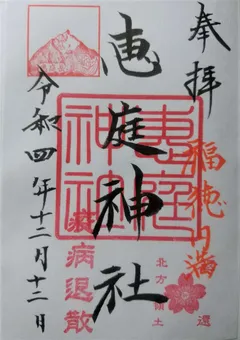 奉拝
福徳円満
恵庭神社
恵庭神社
疫病退散
北方領土
還
令和四年十二月十二日